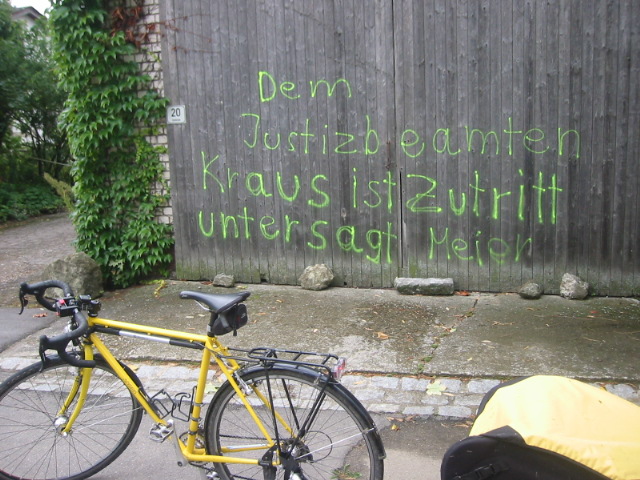 20
Dem
Justizbeamten
Kraus ist Zutritt
untersagt Meier